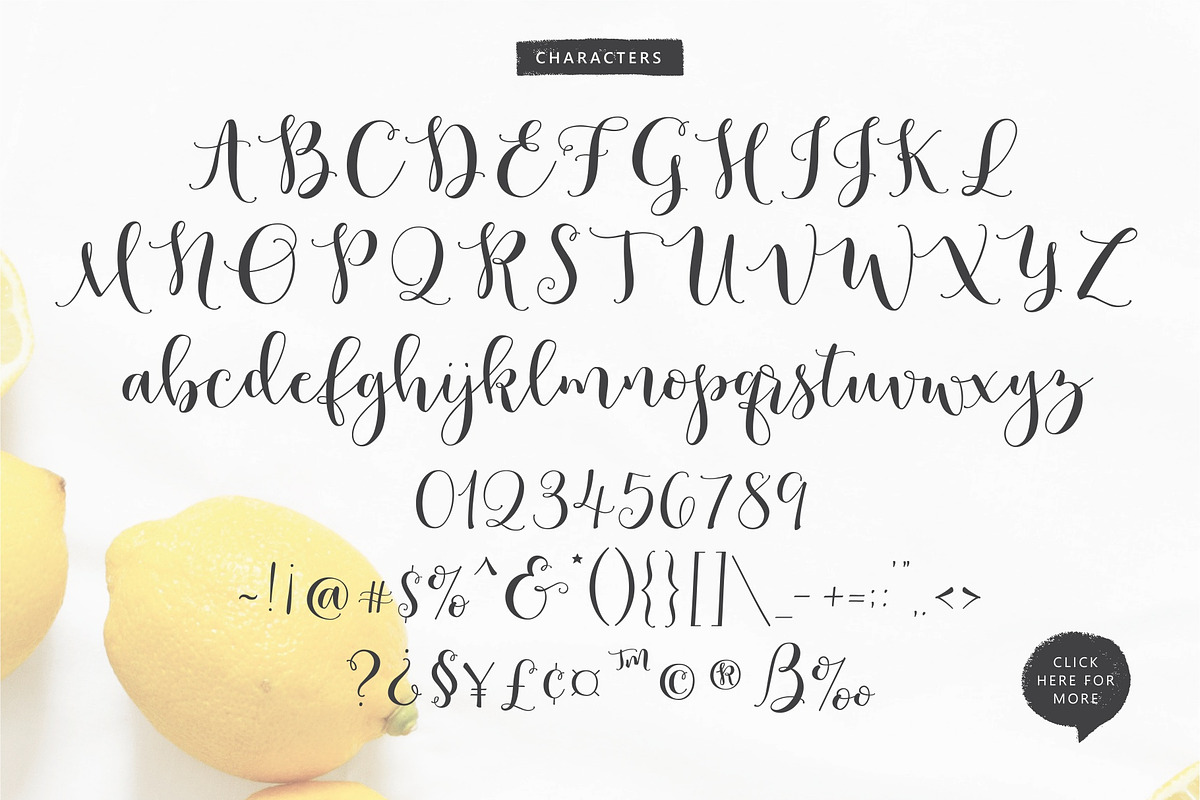 CHARACTERS
ABCDEFGHIJKL
MNOPQRSTUVWXYZ
abcdefghijklmnopqrstuvwxyz
0123456789
~!¡@#$%^&*(){}[]\_-+=;:'",.<>
?¿§¥£¢¤™©®ß‰
CLICK
HERE FOR
MORE